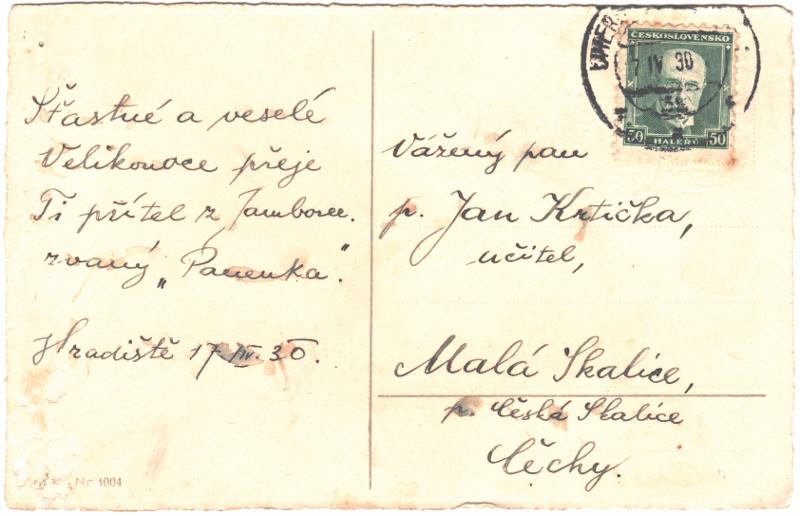 Šťastné a veselé
Velikonoce přeje
Ti přítel z Jamboree.
zvaný „Panenka".
Hradiště 17. IV. 30.
Nr 1004
ČESKOSLOVENSKO
50 50
HALÉŘŮ
IV 30
Vážený pan
p. Jan Krtička,
učitel,
Malá Skalice,
p. Česká Skalice
Čechy.